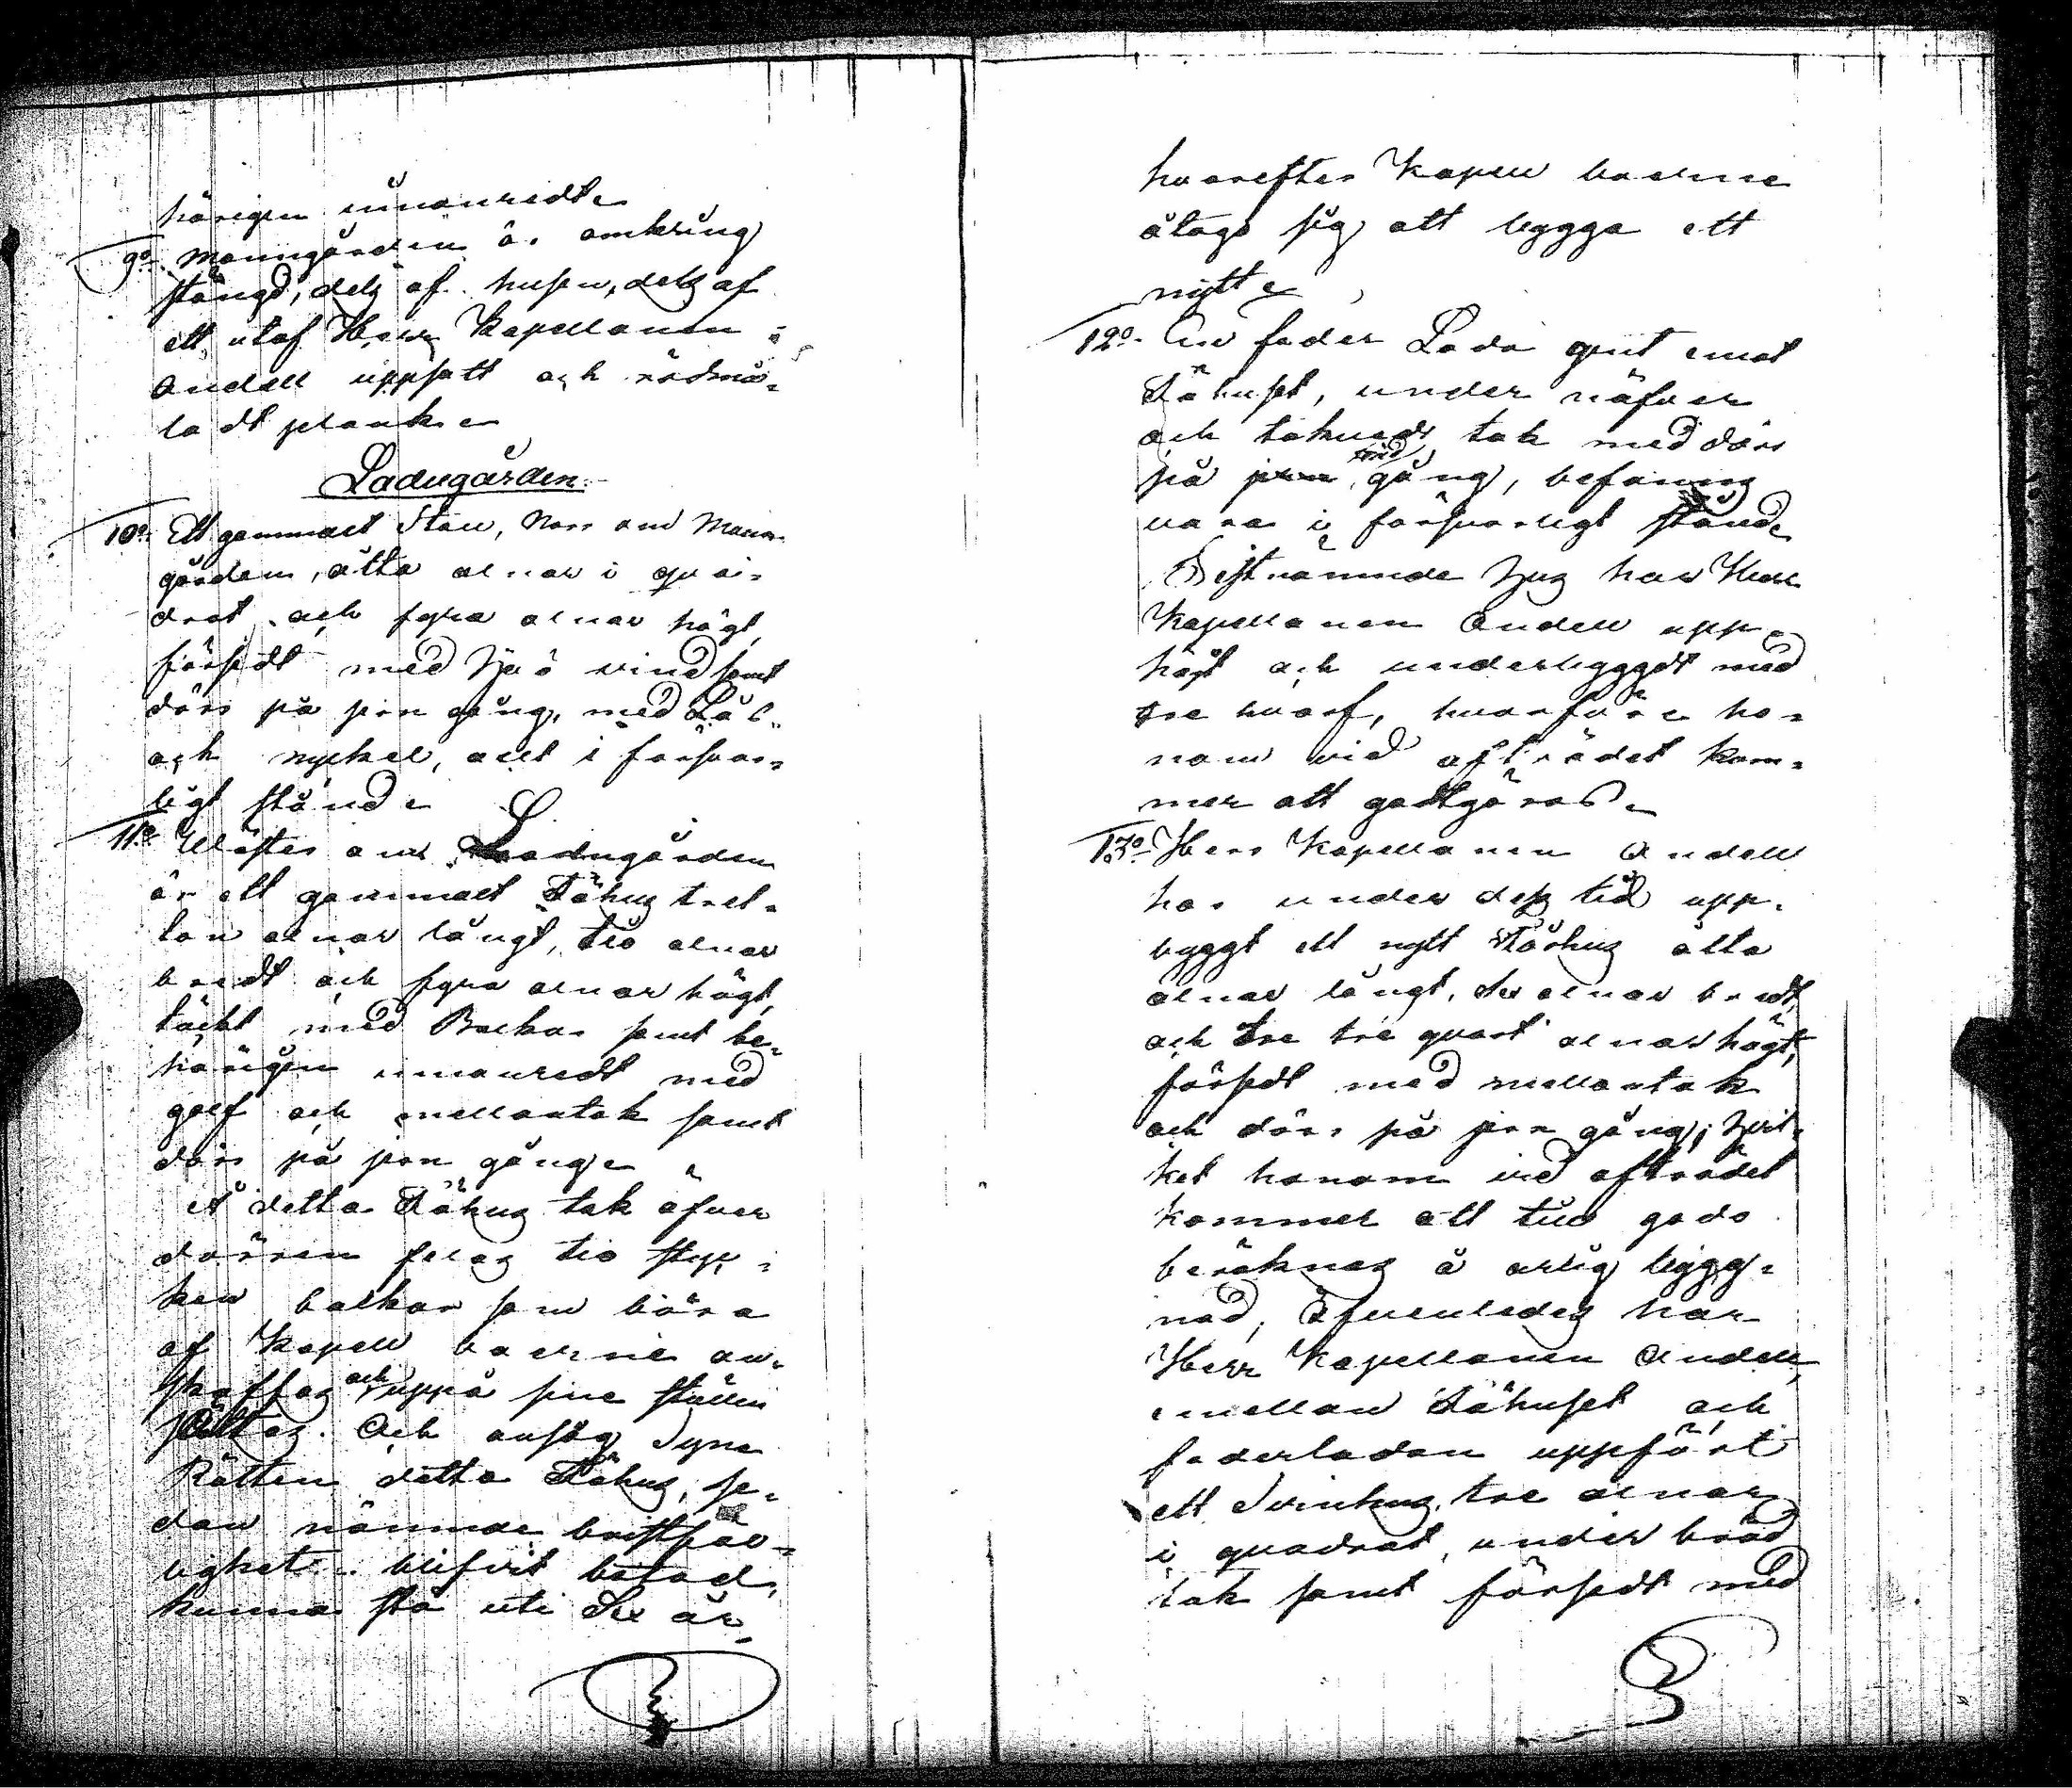 hörigen innanredt.
9o. Manngården är omkring
stängd, dels af husen, dels af
ett utaf Herr Kapellanen
Andell uppsatt och rödmå-
ladt plank.
Ladugården.
10o. Ett gammalt Stall, Norr om Mann-
gården, åtta alnar i qva-
drat och fyra alnar högt,
försedt med Hjö vind samt
dörr på jern gång, med Lås
och nyckel, allt i försvar-
ligt stånd.
11o. Wäster om Ladugården
är ett gammalt Fähus tret-
ton alnar långt, tio alnar
bredt och fyra alnar högt,
täckt med Balkar samt be-
hörigen innanredt med
golf och mellantak samt
dörr på jern gång.
A detta Fähus tak öfver
dörren felas tio styc-
ken balkar som böra
af Kapell boerne an-
skaffas och uppå sine ställen
sättas. Och ansåg Syne
Rätten detta Fähus, se-
dan nämnde bristfäl-
lighet blifvit botad,
kunna stå uti Sex år,
hvarefter Kapell boerne
åtogo sig att bygga ett
nytt.
12o. En foder Lada gent emot
Fähuset, under näfver
och takved tak med dörr
på jern träd gång, befanns
vara i försvarligt stånd.
Sistnämnde hus har Herr
Kapellanen Andell upp-
höjt och underbyggdt med
tre hvarf, hvarföre ho-
nom vid afträdet kom-
mer att godtgöras.
13o. Herr Kapellanen Andell
har under dess tid upp-
byggt ett nytt Fårhus åtta
alnar långt, sex alnar bredt,
och tre tre qvart alnar högt,
försedt med mellantak
och dörr på jern gång; hvil-
ket honom vid afträdet
kommer att till godo
beräknas å årlig bygg-
nad, Äfvenledes har
Herr Kapellanen Andell,
emellan Fähuset och
foderladan uppfört
ett Svinhus, tre alnar
i quadrat, under bräd
tak samt försedt med